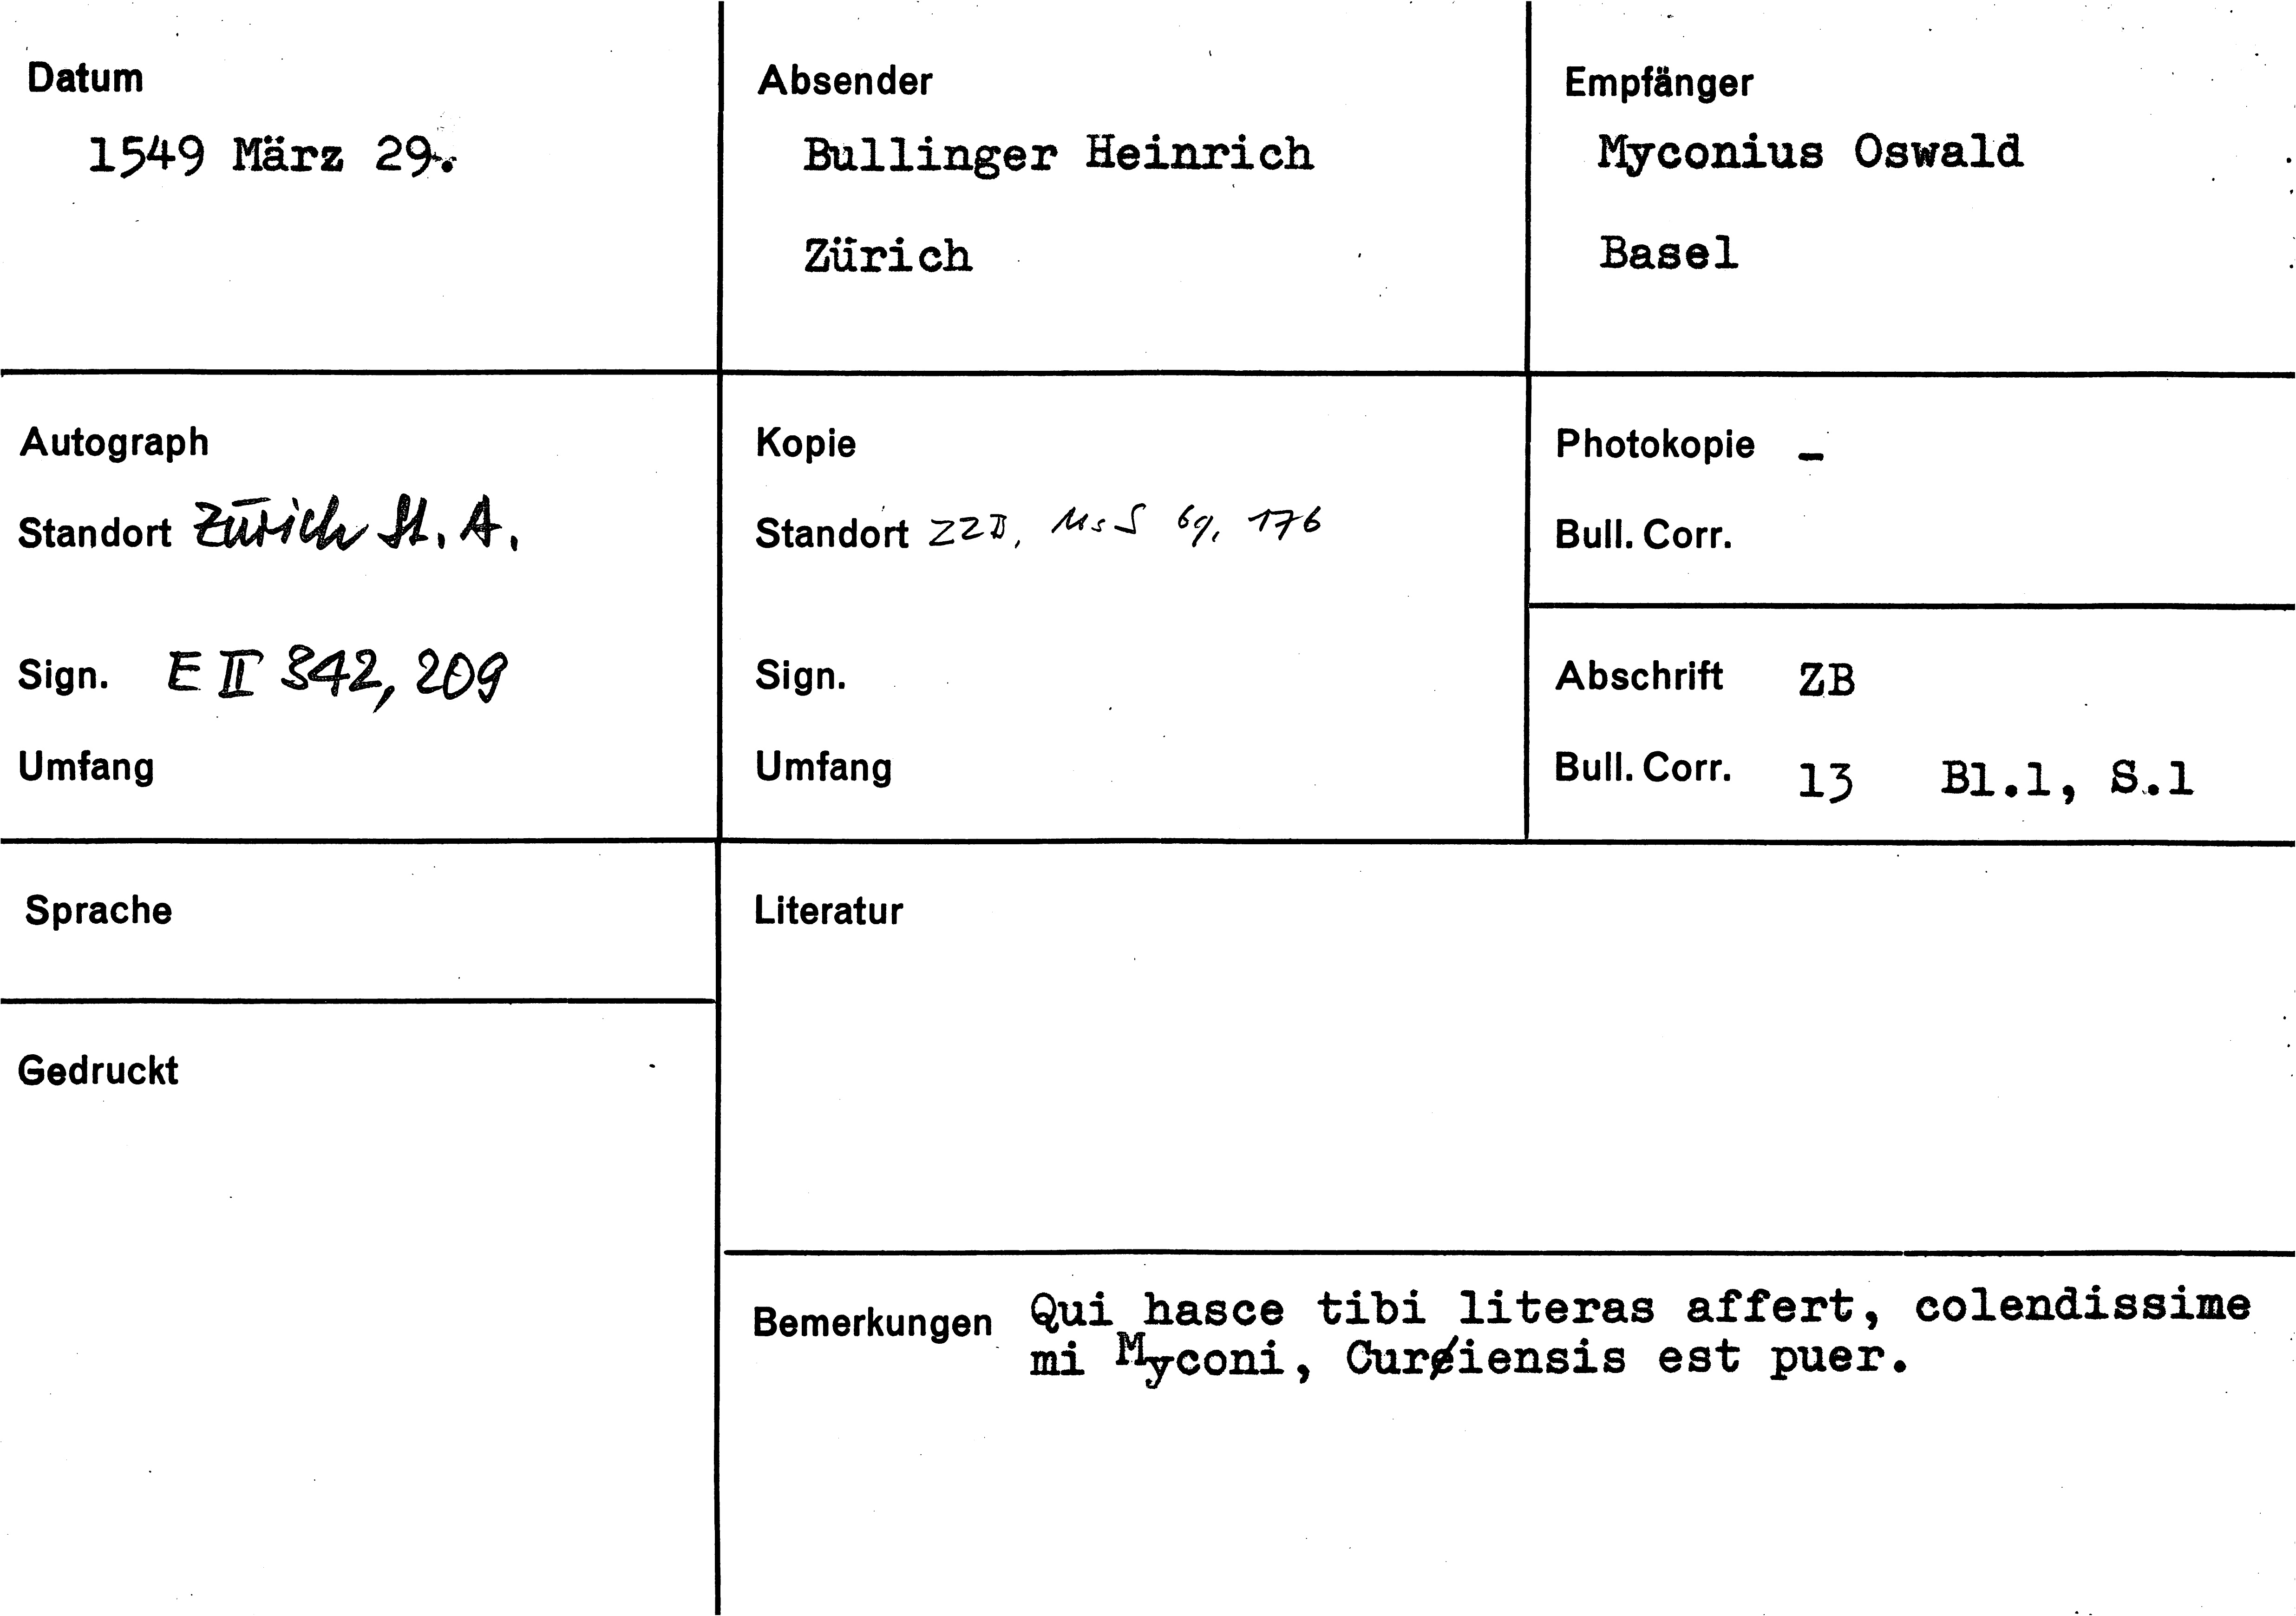 Datum
1549 März 29.
Absender
Bullinger Heinrich
Zürich
Empfänger
Myconius Oswald
Basel
Autograph
Standort Zürich St. A.
Sign. E II 342, 209
Umfang
Kopie
Standort ZZB, Ms S 69, 176
Sign.
Umfang
Photokopie –
Bull. Corr.
Abschrift ZB
Bull. Corr. 13 Bl.1, S.1
Sprache
Gedruckt
Literatur
Bemerkungen Qui hasce tibi literas affert, colendissime
mi Myconi, Curiensis est puer.